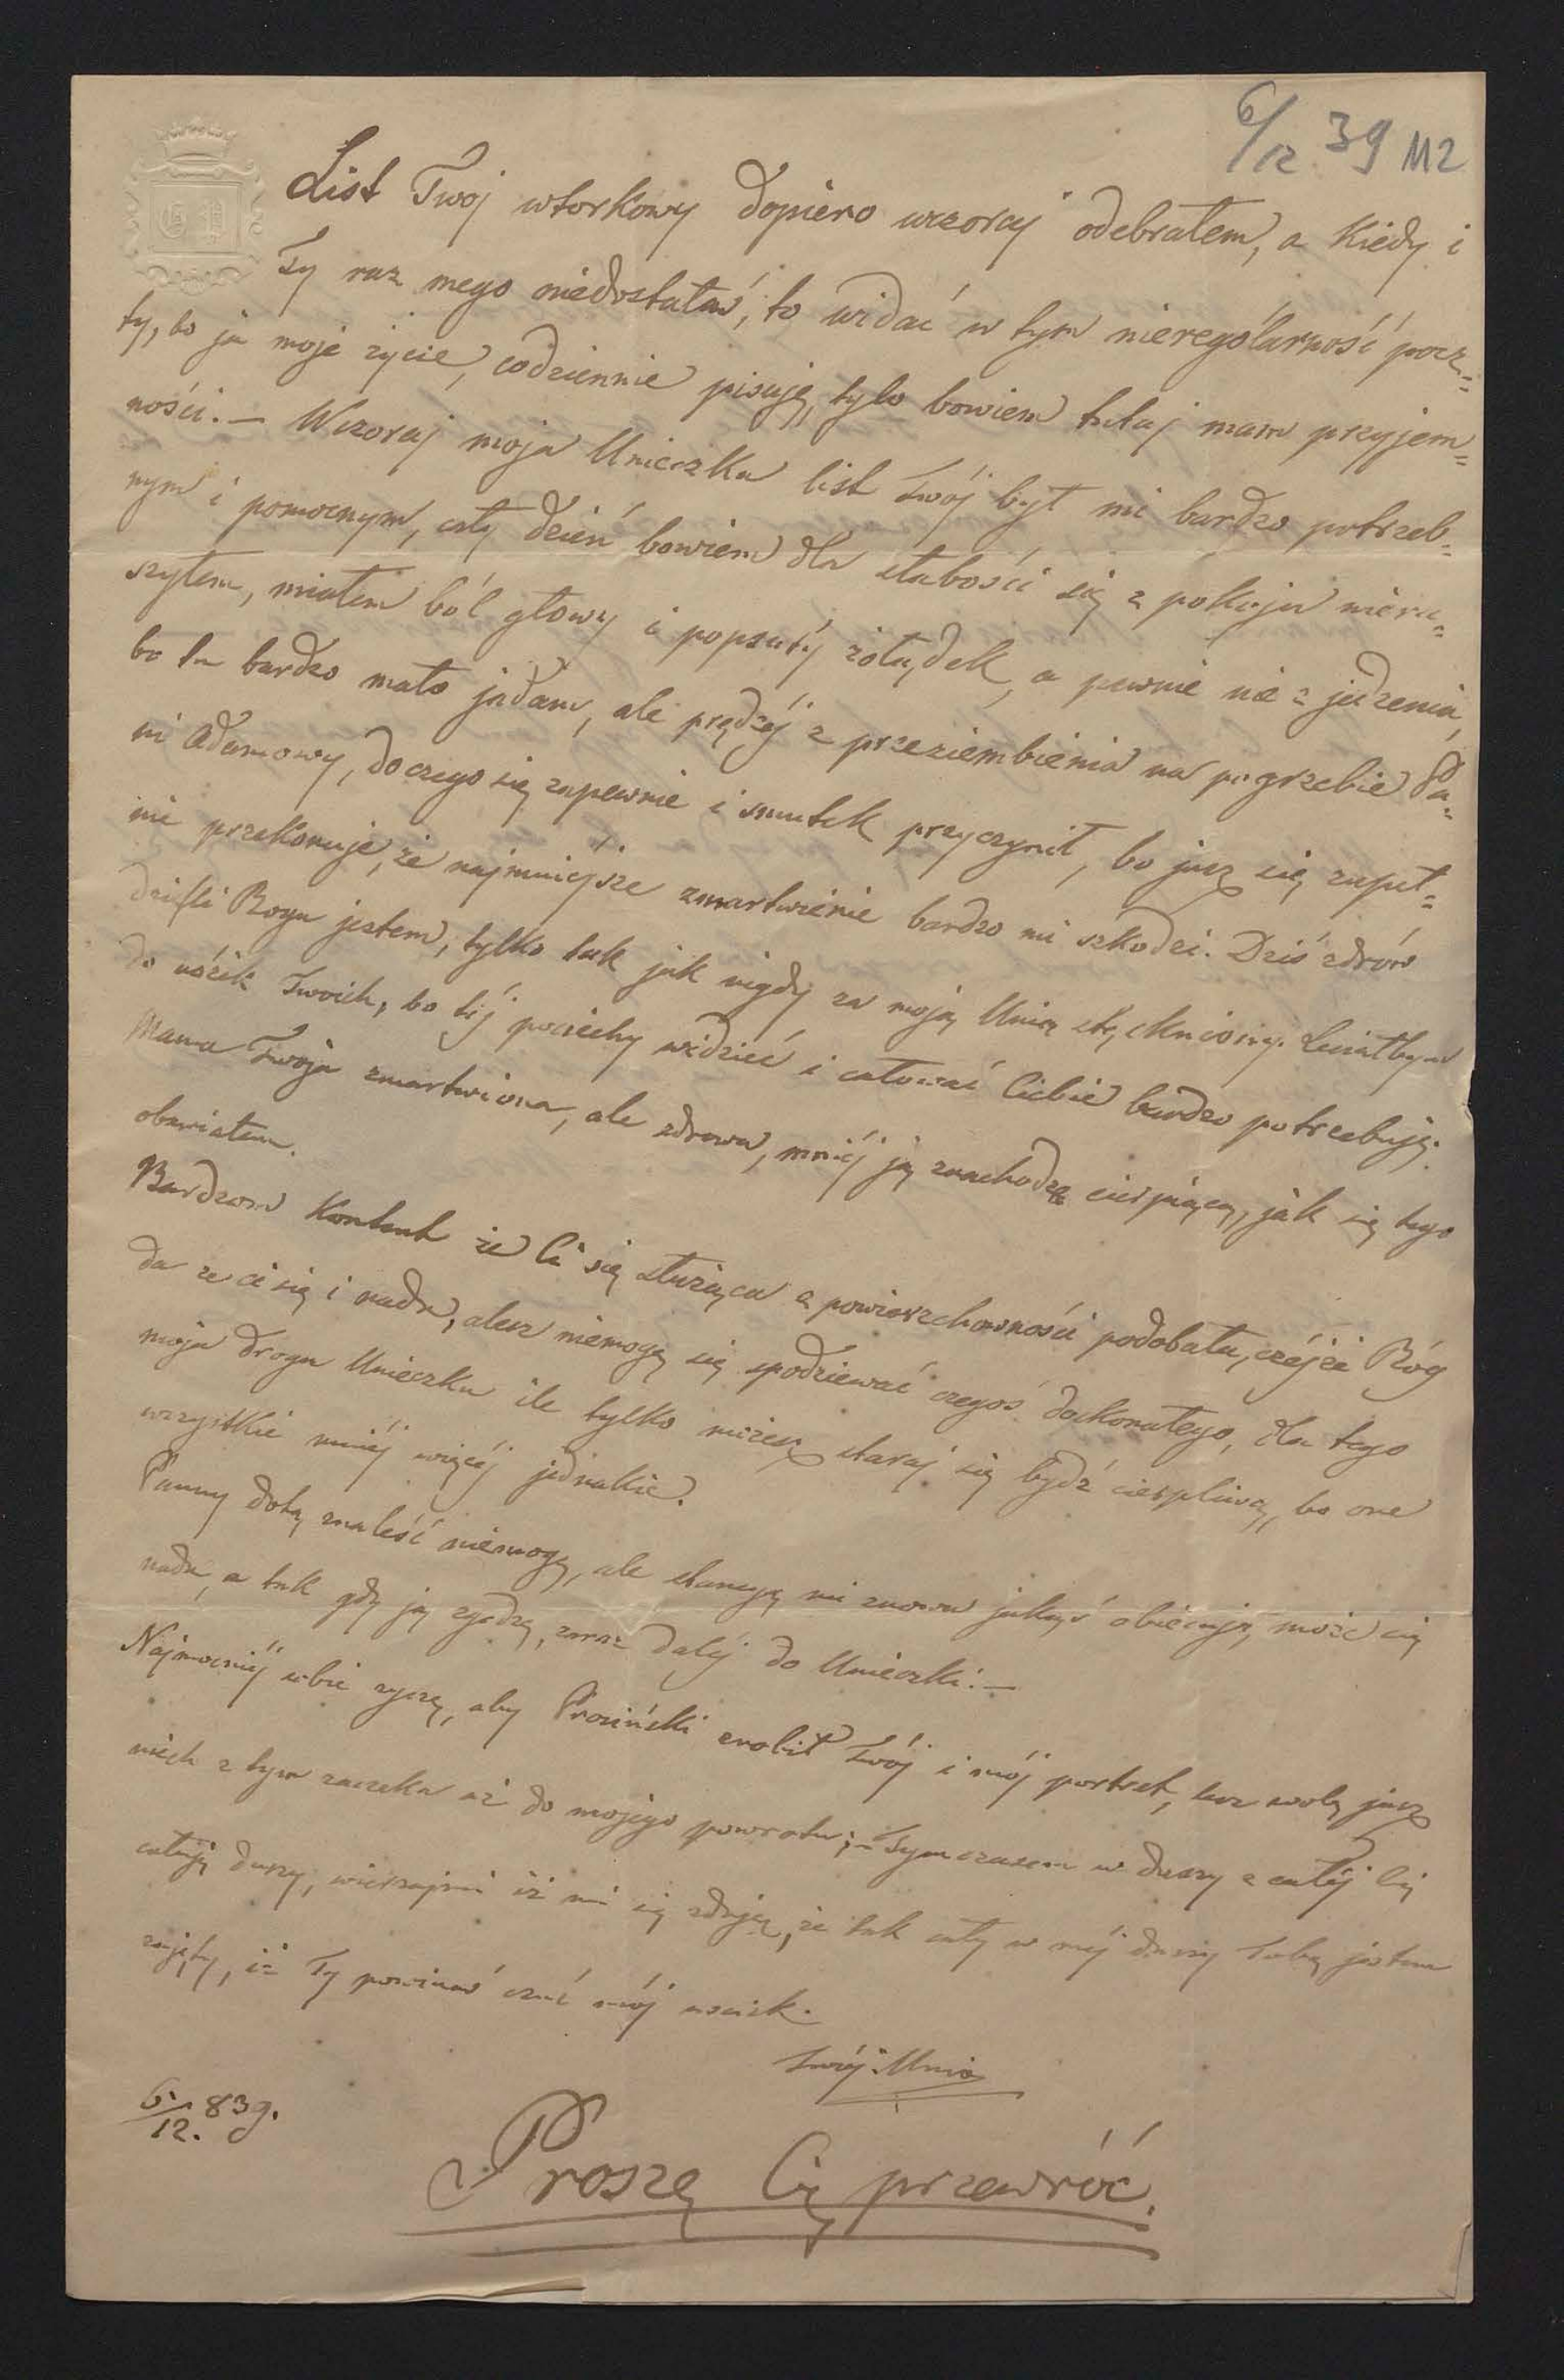 6/12 39 112
List Twoj wtorkowy dopiero wczoraj odebrałem, a kiedy i
Ty raz mego niedostałaś, to widać w tym nierególarność pocz=
ty, bo ja moje życie, codziennie pisuję, tylo bowiem tutaj mam przyjem=
ności. — Wczoraj moja Unieczka list Twój był mi bardzo potrzeb=
nym i pomocnym, cały dzień bowiem dla słabości się z pokoju nieru=
szyłem, miałem ból głowy i popsuty żołądek, a pewnie nie z jedzenia,
bo tu bardzo mało jadam, ale prędzéj z przeziembienia na pogrzebie Pa=
ni Adamowy, do czego się zapewnie i smutek przyczynił, bo jusz się zupeł=
nie przekonuję, że najmniéjsze zmartwienie bardzo mi szkodzi. Dziś zdrów
dzięki Bogu jestem, tylko tak jak nigdy za moją Unią stęskniony. Leciałbym
do nóżik Twoich, bo téj pociechy widzieć i całować Ciebie bardzo potrzebuję.
Mama Twoja zmartwiona, ale zdrowa, mniéj ją znachodzę cierpiącą, jak się tego
obawiałem.
Bardzom kontent że Ci się służąca z powierzchowności podobała, Bóg
da ze ci się i nada, alesz niemogę się spodziewać czegoś doskonałego, dla tego
moja droga Unieczku ile tylko możesz staraj się bydź cierpliwą, bo one
wszystkie mniéj więcéj jednakie.
Panny dotą znaleść niemogę, ale stancyą mi znowu jakąś obiecują, może się
nada, a tak gdy ją zgodzę, zaraz daléj do Unieczki. —
Najmocniéj sobie życzę, aby Prosiński zrobił Twój i mój portret, lecz wolę jusz
niech z tym zaczeka aż do mojego powrotu; — Tymczasem w duszy z całéj Cię
całuję duszy, wierzajmi iż mi się zdaję, że tak cały w méj duszy Tobą jestem
zajęty, iż Ty powinnaś czuć mój uscisk.
Twój Unio
6/12. 839.
Proszę Cię przewróć.